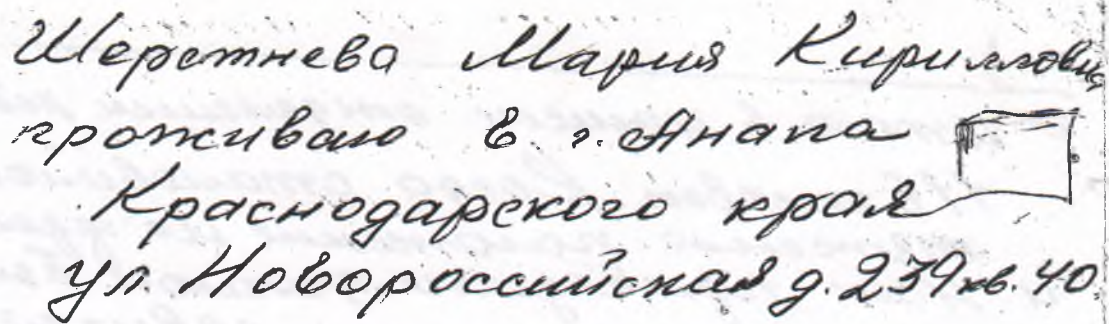 Шерстнева Мария Кирилловна
проживаю в г. Анапа
Краснодарского края
ул. Новороссийская д. 239 кв. 40.